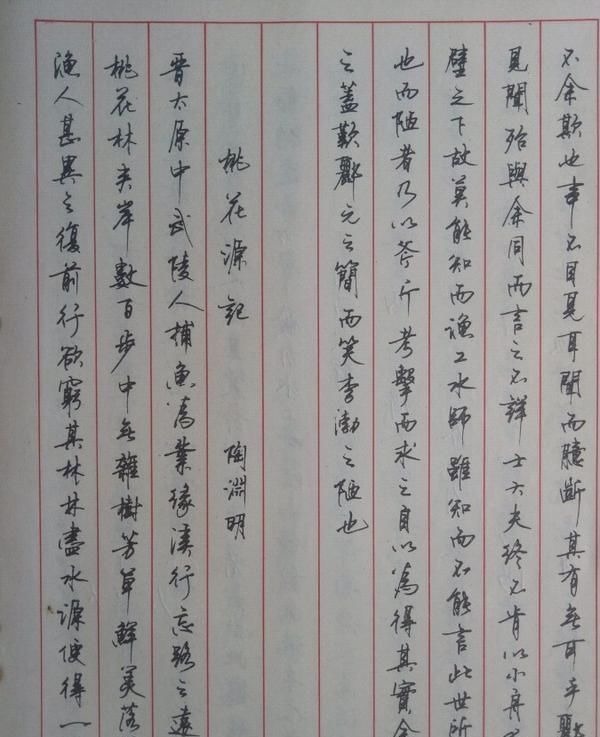 不余欺也事不目見耳聞而臆斷其有無可乎酈
見聞殆與余同而言之不詳士大夫終不肯以小舟
壁之下故莫能知而漁工水師雖知而不能言此世所
也而陋者乃以斧斤考擊而求之自以為得其實余
之蓋歎酈元之簡而笑李渤之陋也
桃花源記 陶淵明
晉太原中武陵人捕魚為業緣溪行忘路之遠
桃花林夾岸數百步中無雜樹芳草鮮美落
漁人甚異之復前行欲窮其林林盡水源便得一